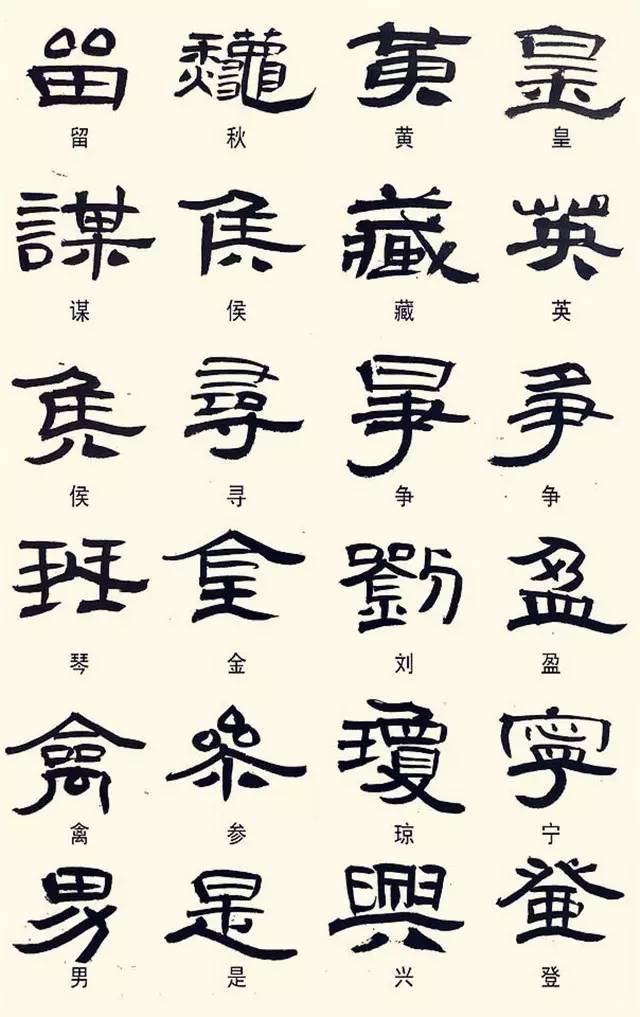 留 龝 黄 皇
留 秋 黄 皇
謀 侯 藏 英
谋 侯 藏 英
侯 尋 爭 爭
侯 寻 争 争
琴 金 劉 盈
琴 金 刘 盈
禽 參 瓊 寧
禽 参 琼 宁
男 是 興 登
男 是 兴 登